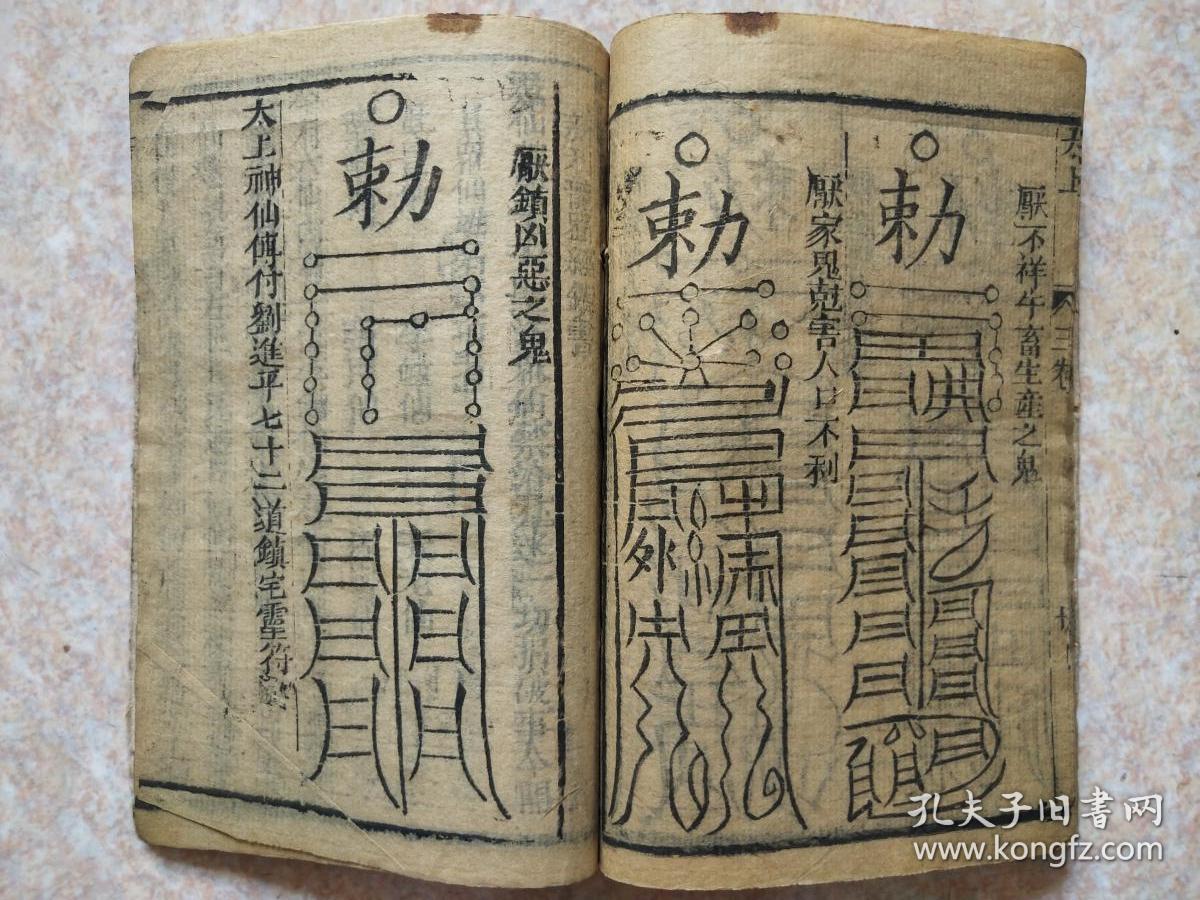 太上
三卷
厭不祥牛畜生產之鬼
勅
厭家鬼尅害人口不利
勅
厭鎮凶惡之鬼
勅
太上神仙傳付劉進平七十二道鎮宅靈符
孔夫子旧书网
www.kongfz.com